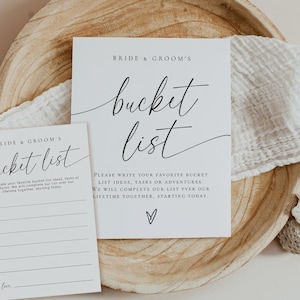 BRIDE & GROOM'S
bucket
list
PLEASE WRITE YOUR FAVORITE BUCKET
LIST IDEAS, TASKS OR ADVENTURES.
WE WILL COMPLETE OUR LIST OVER OUR
LIFETIME TOGETHER, STARTING TODAY.
BRIDE & GROOM'S
bucket list